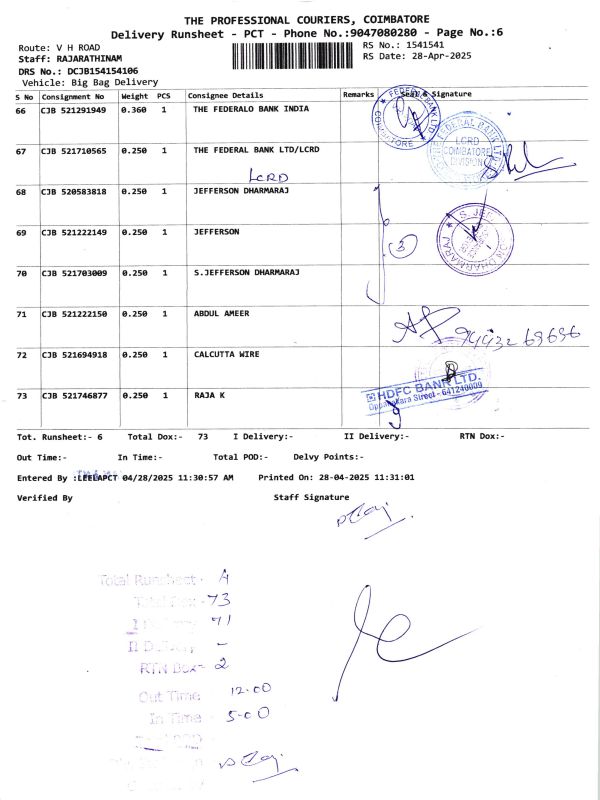 THE PROFESSIONAL COURIERS, COIMBATORE
Delivery Runsheet - PCT - Phone No.:9047080280 - Page No.:6
Route: V H ROAD
RS No.: 1541541
Staff: RAJARATHINAM
RS Date: 28-Apr-2025
DRS No.: DCJB154154106
Vehicle: Big Bag Delivery
S No Consignment No Weight PCS Consignee Details Remarks Seal & Signature
66 CJB 521291949 0.360 1 THE FEDERALO BANK INDIA
FEDERAL BANK LTD
COIMBATORE
67 CJB 521710565 0.250 1 THE FEDERAL BANK LTD/LCRD
LCRD
FEDERAL BANK LTD
LCRD
COIMBATORE
DIVISION
68 CJB 520583818 0.250 1 JEFFERSON DHARMARAJ
69 CJB 521222149 0.250 1 JEFFERSON
3
70 CJB 521703009 0.250 1 S.JEFFERSON DHARMARAJ
71 CJB 521222150 1 0.250 ABDUL AMEER
9443269696
72 CJB 521694918 0.250 1 CALCUTTA WIRE
HDFC BANK LTD.
Oppanakara Street - 641240009
73 CJB 521746877 0.250 1 RAJA K
Tot. Runsheet:- 6 Total Dox:- 73 I Delivery:- II Delivery:- RTN Dox:-
Out Time:- In Time:- Total POD:- Delvy Points:-
Entered By :LEELAPCT 04/28/2025 11:30:57 AM Printed On: 28-04-2025 11:31:01
Verified By Staff Signature
Total Runsheet- A
73
71
II D -
RTN Dox- 2
Out Time 12.00
In Time 5.00